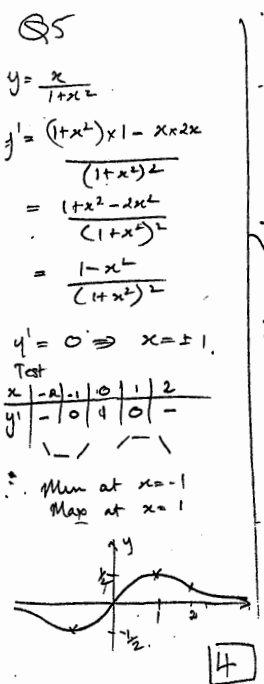 Q5
y = x / (1+x²)
y' = ((1+x²)×1 − x×2x) / (1+x²)²
= (1+x²−2x²) / (1+x²)²
= (1−x²) / (1+x²)²
y' = 0 ⇒ x = ±1.
Test
x | -2 | -1 | 0 | 1 | 2
y' | − | 0 | 1 | 0 | −
∴ Min at x=-1
Max at x=1
y
½
1 2
-½
4